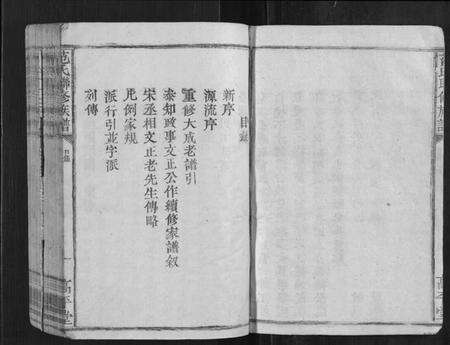 目錄
新序
源流序
重修大成老譜引
參知政事文正公作續修家譜敘
宋丞相文正老先生傳略
凡例家規
派行引並字派
列傳
范氏聯修族譜
目錄
一
高平堂